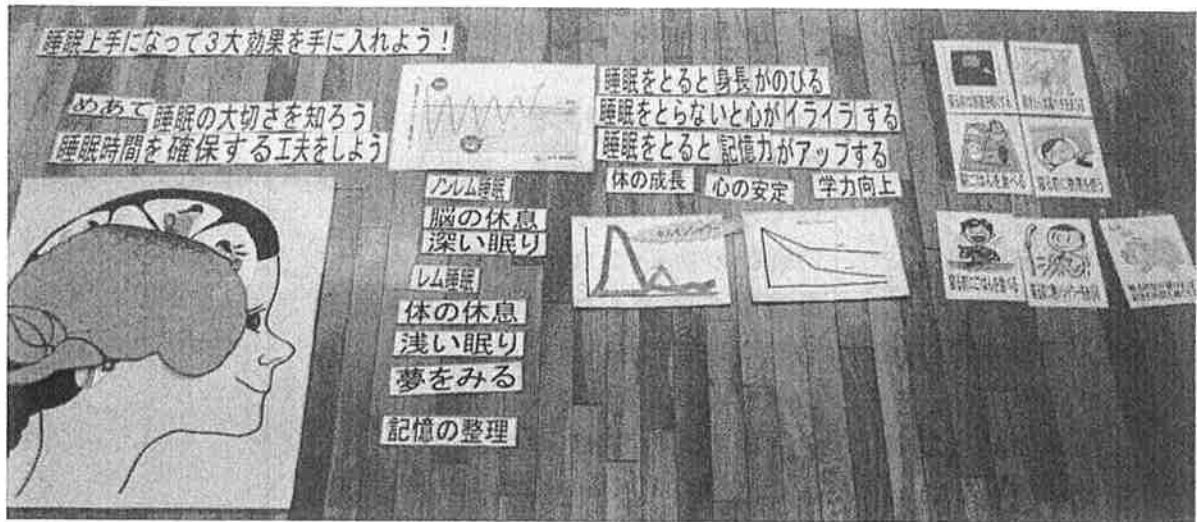 睡眠上手になって3大効果を手に入れよう!
めあて 睡眠の大切さを知ろう
睡眠時間を確保する工夫をしよう
ノンレム睡眠
脳の休息
深い眠り
レム睡眠
体の休息
浅い眠り
夢をみる
記憶の整理
睡眠をとると身長がのびる
睡眠をとらないと心がイライラする
睡眠をとると記憶力がアップする
体の成長
心の安定
学力向上
朝ごはんを食べる
寝る前にごはんを食べる